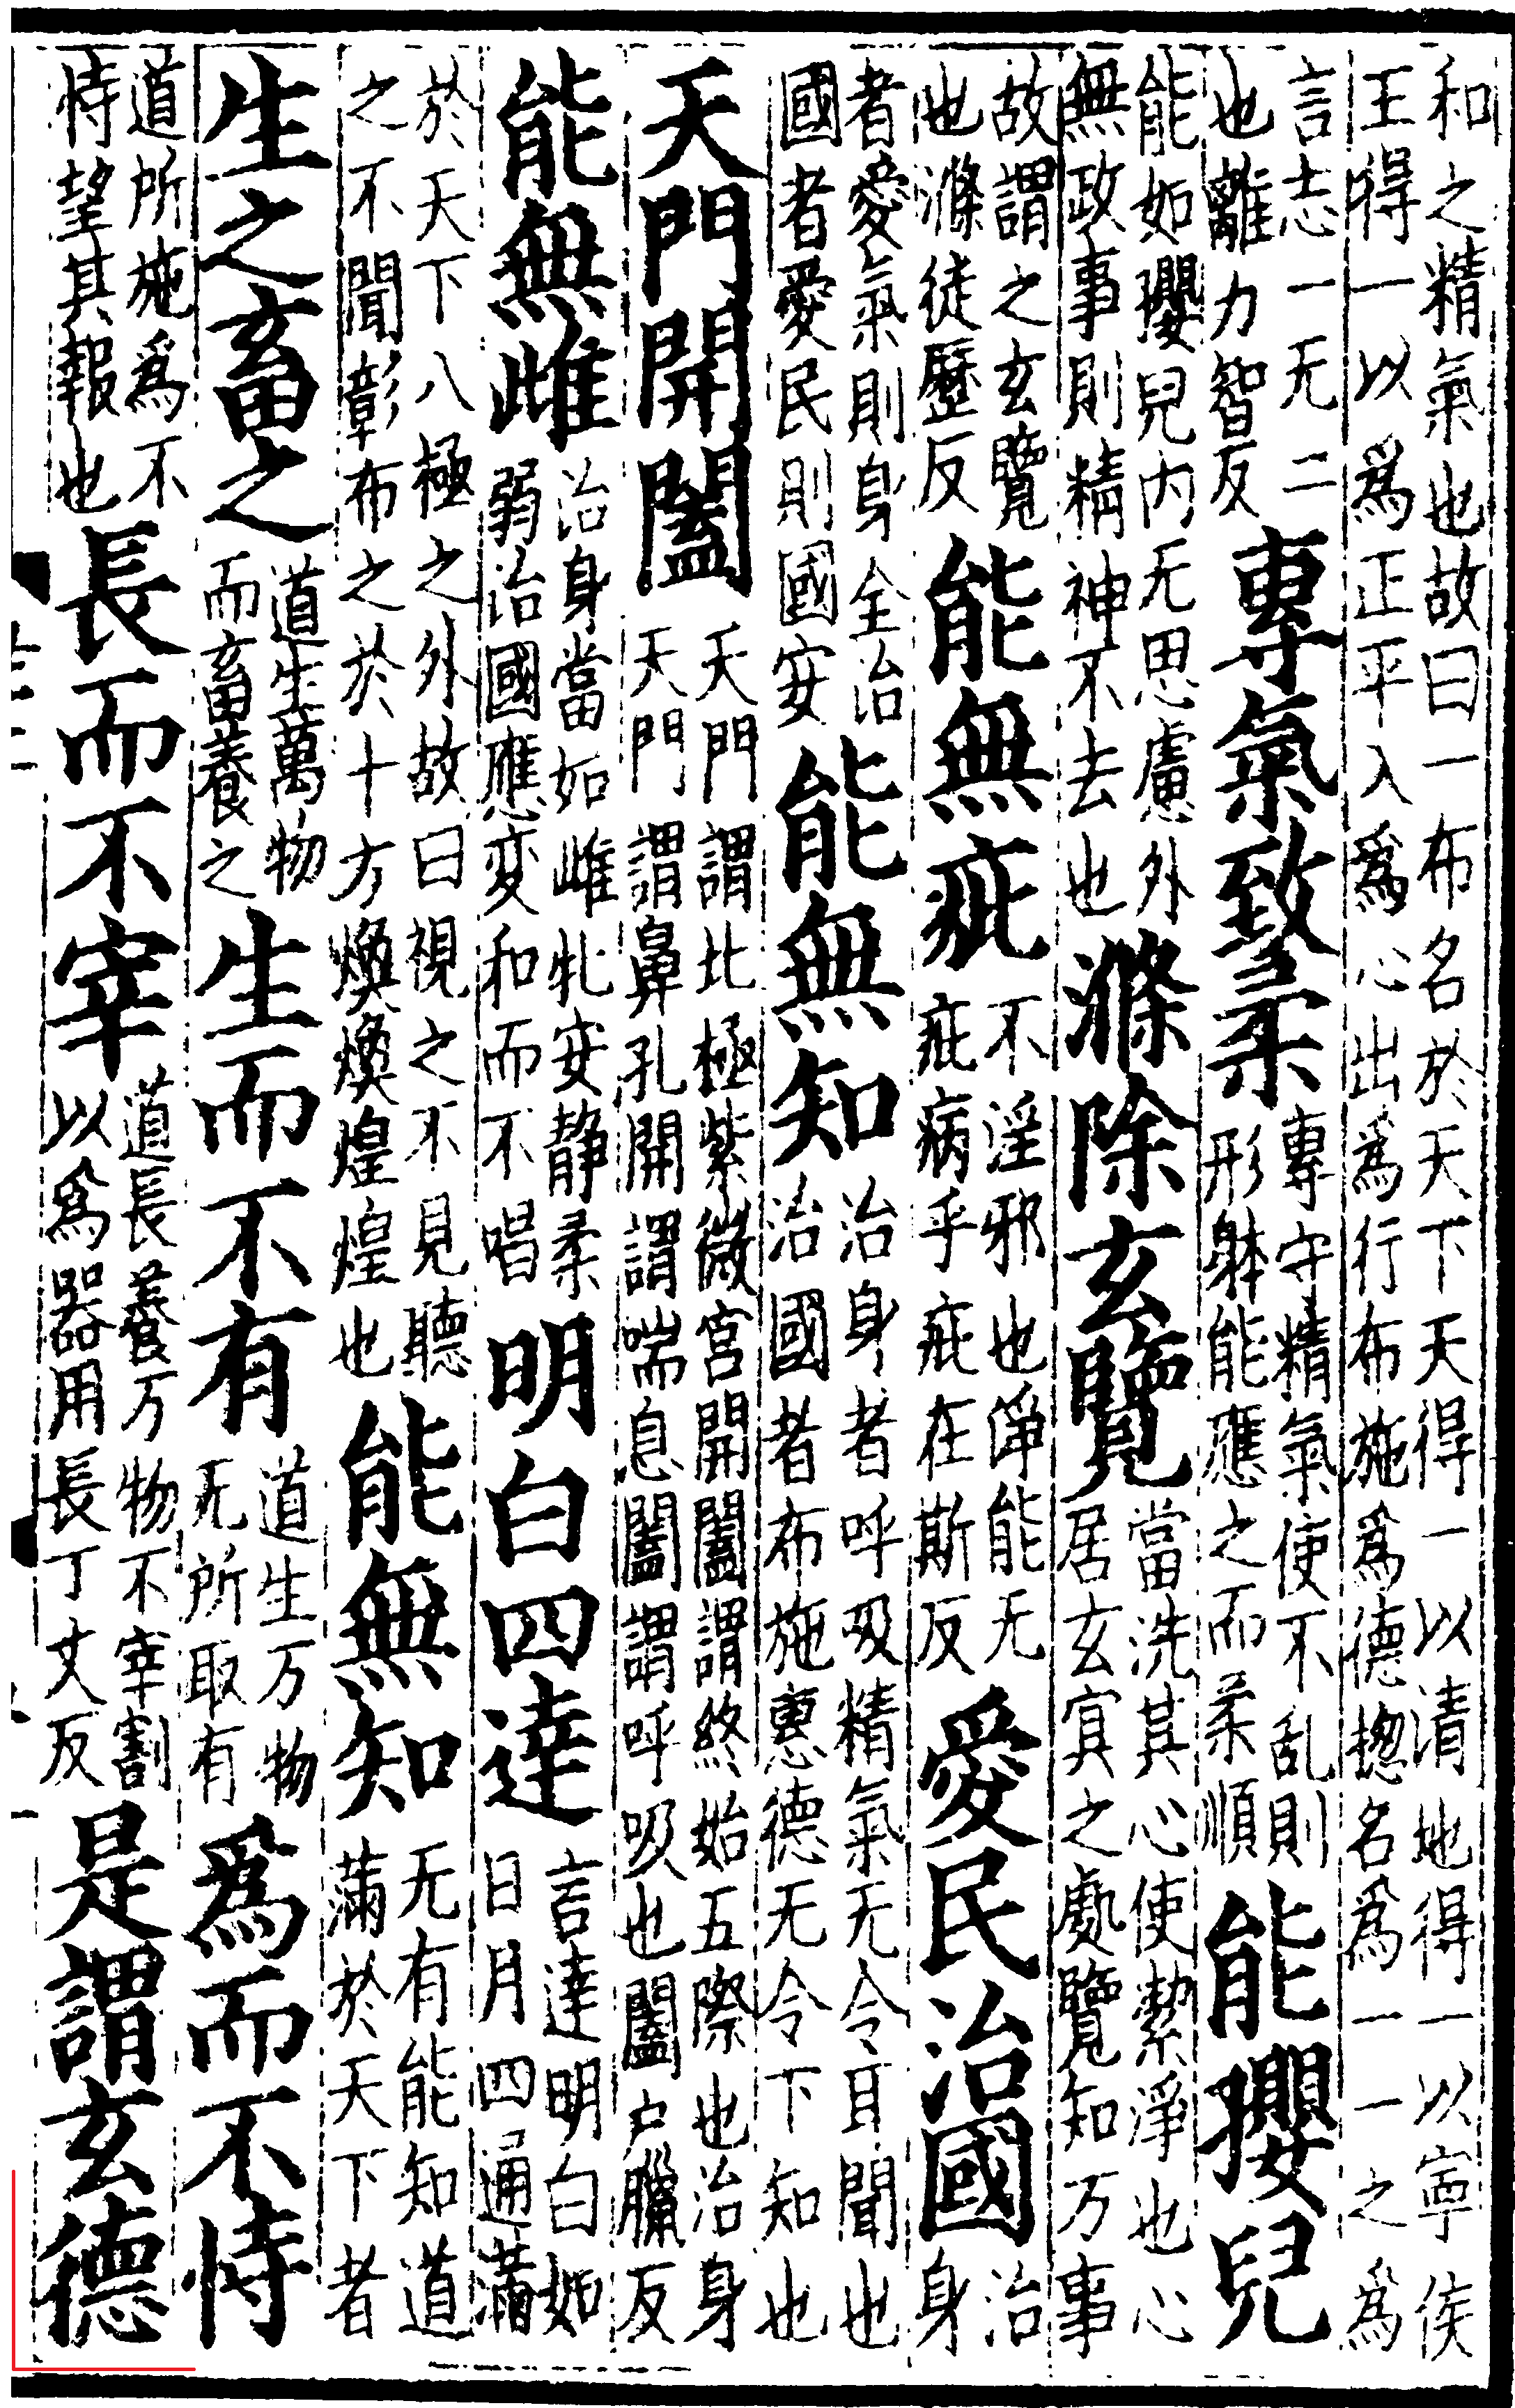 和之精氣也故曰一布名於天下天得一以清地得一以寧侯
王得一以爲正平入爲心出爲行布施爲德揔名爲一一之爲
言志一无二
也離力智反
專氣致柔
專守精氣使不乱則
形躰能應之而柔順
能孾兒
能如孾兒内无思慮外
無政事則精神不去也
滌除玄覽
當洗其心使絜淨也心
居玄冥之處覽知万事
故謂之玄覽
也滌徒歷反
能無疵
不淫邪也淨能无
疵病乎疵在斯反
愛民治國
治
身
者愛氣則身全治
國者愛民則國安
能無知
治身者呼吸精氣无令耳聞也
治國者布施惠德无令下知也
天門開闔
天門謂北極紫微宮開闔謂終始五際也治身
天門謂鼻孔開謂喘息闔謂呼吸也闔户臘反
能無雌
治身當如雌牝安静柔
弱治國應変和而不唱
明白四達
言達明白如
日月四通滿
於天下八極之外故曰視之不見聽
之不聞彰布之於十方煥煥煌煌也
能無知
无有能知道
滿於天下者
生之畜之
道生萬物
而畜養之
生而不有
道生万物
无所取有
爲而不恃
道所施爲不
恃望其報也
長而不宰
道長養万物不宰割
以爲器用長丁丈反
是謂玄德